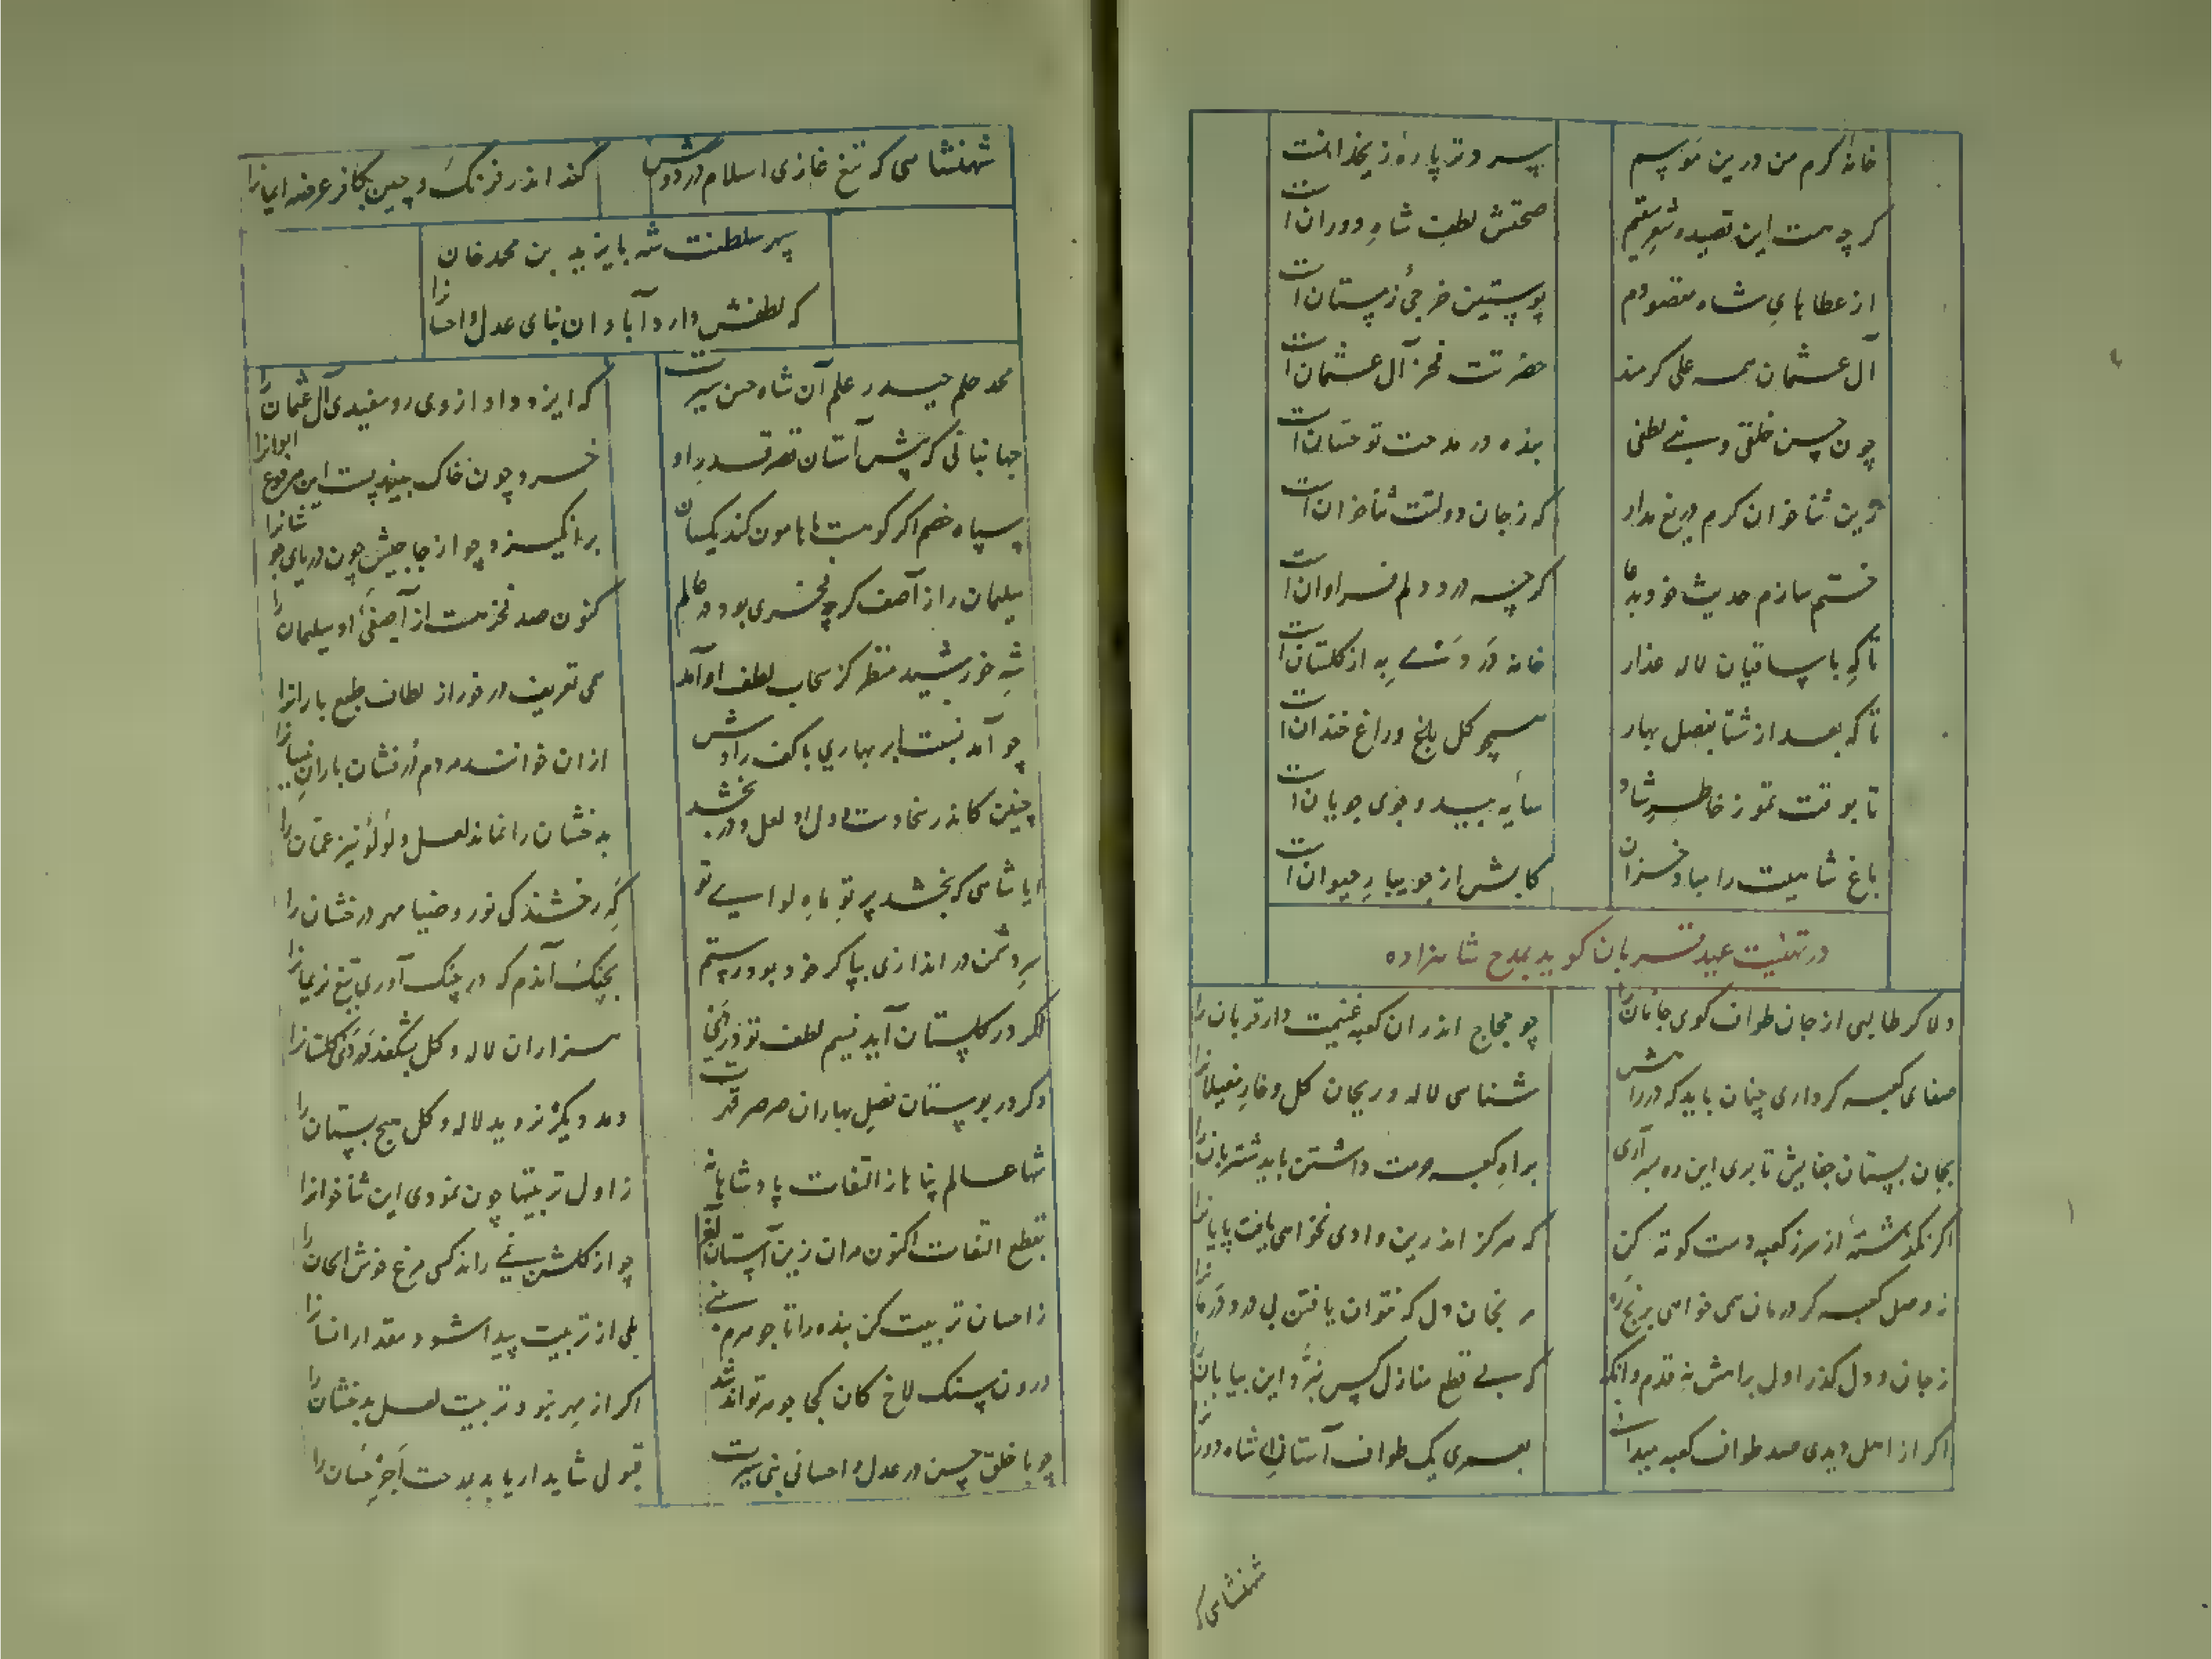 خانهٔ کرم من درین موسم
سردتر پارهٔ ز یخدانست
کرچه هست این قصیده شعر سقیم
صحتش لطف شاه دورانست
از عطاهای شاه مقصودم
پوستین خرجیٔ زمستانست
آل عثمان همه علی کرمند
حضرتت فخر آل عثمانست
چون حسن خلقی و نبی لطفی
بنده در مدحت تو حسانست
زین ثناخوان کرم دریغ مدار
که ز جان دولتت ثناخوانست
ختم سازم حدیث خود بدعا
کرچه درد دلم فراوانست
تا که با ساقیان لاله عذار
خانه در دی به از کلستانست
تا که بعد از شتا بفصل بهار
همچو کل باغ و راغ خندانست
تا بوقت تموز خاطر شاد
سایه بید و جوی جویانست
باغ شاهیت را مباد خزان
کابش از جویبار حیوانست
در تهنیت عید قربان کوید بمدح شاهزاده
دلا کر طالبی از جان طواف کوی جانانرا
چو حجاج اندران کعبه غنیمت دار قربانرا
صفای کعبه کر داری چنان باید که در راهش
شناسی لاله و ریحان کل و خار مغیلانرا
بجان بستان جفایش تا بری این ره بسر آری
براه کعبه حرمت داشتن باید شتربانرا
اکر نکذشتهٔ از سر ز کعبه دست کوته کن
که هرکز اندرین وادی نخواهی یافت پایانرا
ز وصل کعبه کر درمان همی خواهی برنج ره
مرنجان دل که نتوان یافتن بی درد درمانرا
ز جان و دل کذر اول براهش نه قدم وانکه
که بی قطع منازل کس نبرد این بیابانرا
اکر از اهل دیدی صد طواف کعبه میدانش
بعمری یک طواف آستان شاه دورانرا
شهنشاهی که
شهنشاهی که تیغ غازی اسلام در دورش
کند اندر فرنک و چین بکافر عرضه ایمانرا
سپهر سلطنت شه بایزید بن محمد خان
که لطفش دارد آبادان بنای عدل و احسانرا
محمد حلم حیدر علم آن شاه حسن سیرت
که ایزد داد از وی رو سفیدی آل عثمانرا
جهانبانی که پیش آستان قصر قدر او
خرد چون خاک بیند پست این مرفوع ایوانرا
سپاه خصم اکر کوهست با هامون کند یکسان
برانکیزد چو از جا جیش چون دریای جوشانرا
سلیمان را ز آصف کرچه فخری بود در عالم
کنون صد فخر هست از آصفیٔ او سلیمانرا
شه خورشید منظر کز سحاب لطف او آمد
همی تعریف در خور از لطافت طبع بارانرا
چو آمد نسبت ابر بهاری با کف رادش
از ان خوانند مردم درفشان باران نیسانرا
چنین کاندر سخاوت دل او لعل و در بخشد
بدخشان را نماند لعل و لؤلؤ نیز عمانرا
ایا شاهی که بخشد پرتو ماه لوای تو
که رخشندکی نور و ضیا مهر درخشان را
سر دشمن در اندازی بپا کر خود بود رستم
بجنک آندم که در چنک آوری تیغ نریمانرا
اکر در کلستان آید نسیم لطف تو در دی
هزاران لاله و کل بشکفد در دی کلستانرا
وکر در بوستان فصل بهاران صرصر قهرت
دمد دیکر نروید لاله و کل هیچ بستانرا
شها عالم پناها ز التفات پادشاهانه
ز اول تربیتها چون نمودی این ثناخوانرا
بقطع التفات اکنون مران زین آستان آخر
چو از کلشن نمی راند کسی مرغ خوش الحانرا
ز احسان تربیت کن بنده را تا جوهرم بینی
بلی از تربیت پیدا شود مقدار انسانرا
درون سنک لاخ کان کجا جوهر تواند شد
اکر از مهر نبود تربیت لعل بدخشانرا
چو با خلق حسن در عدل و احسانی نبی سیرت
قبولی شاید ار یابد بمدحت اجر حسانرا